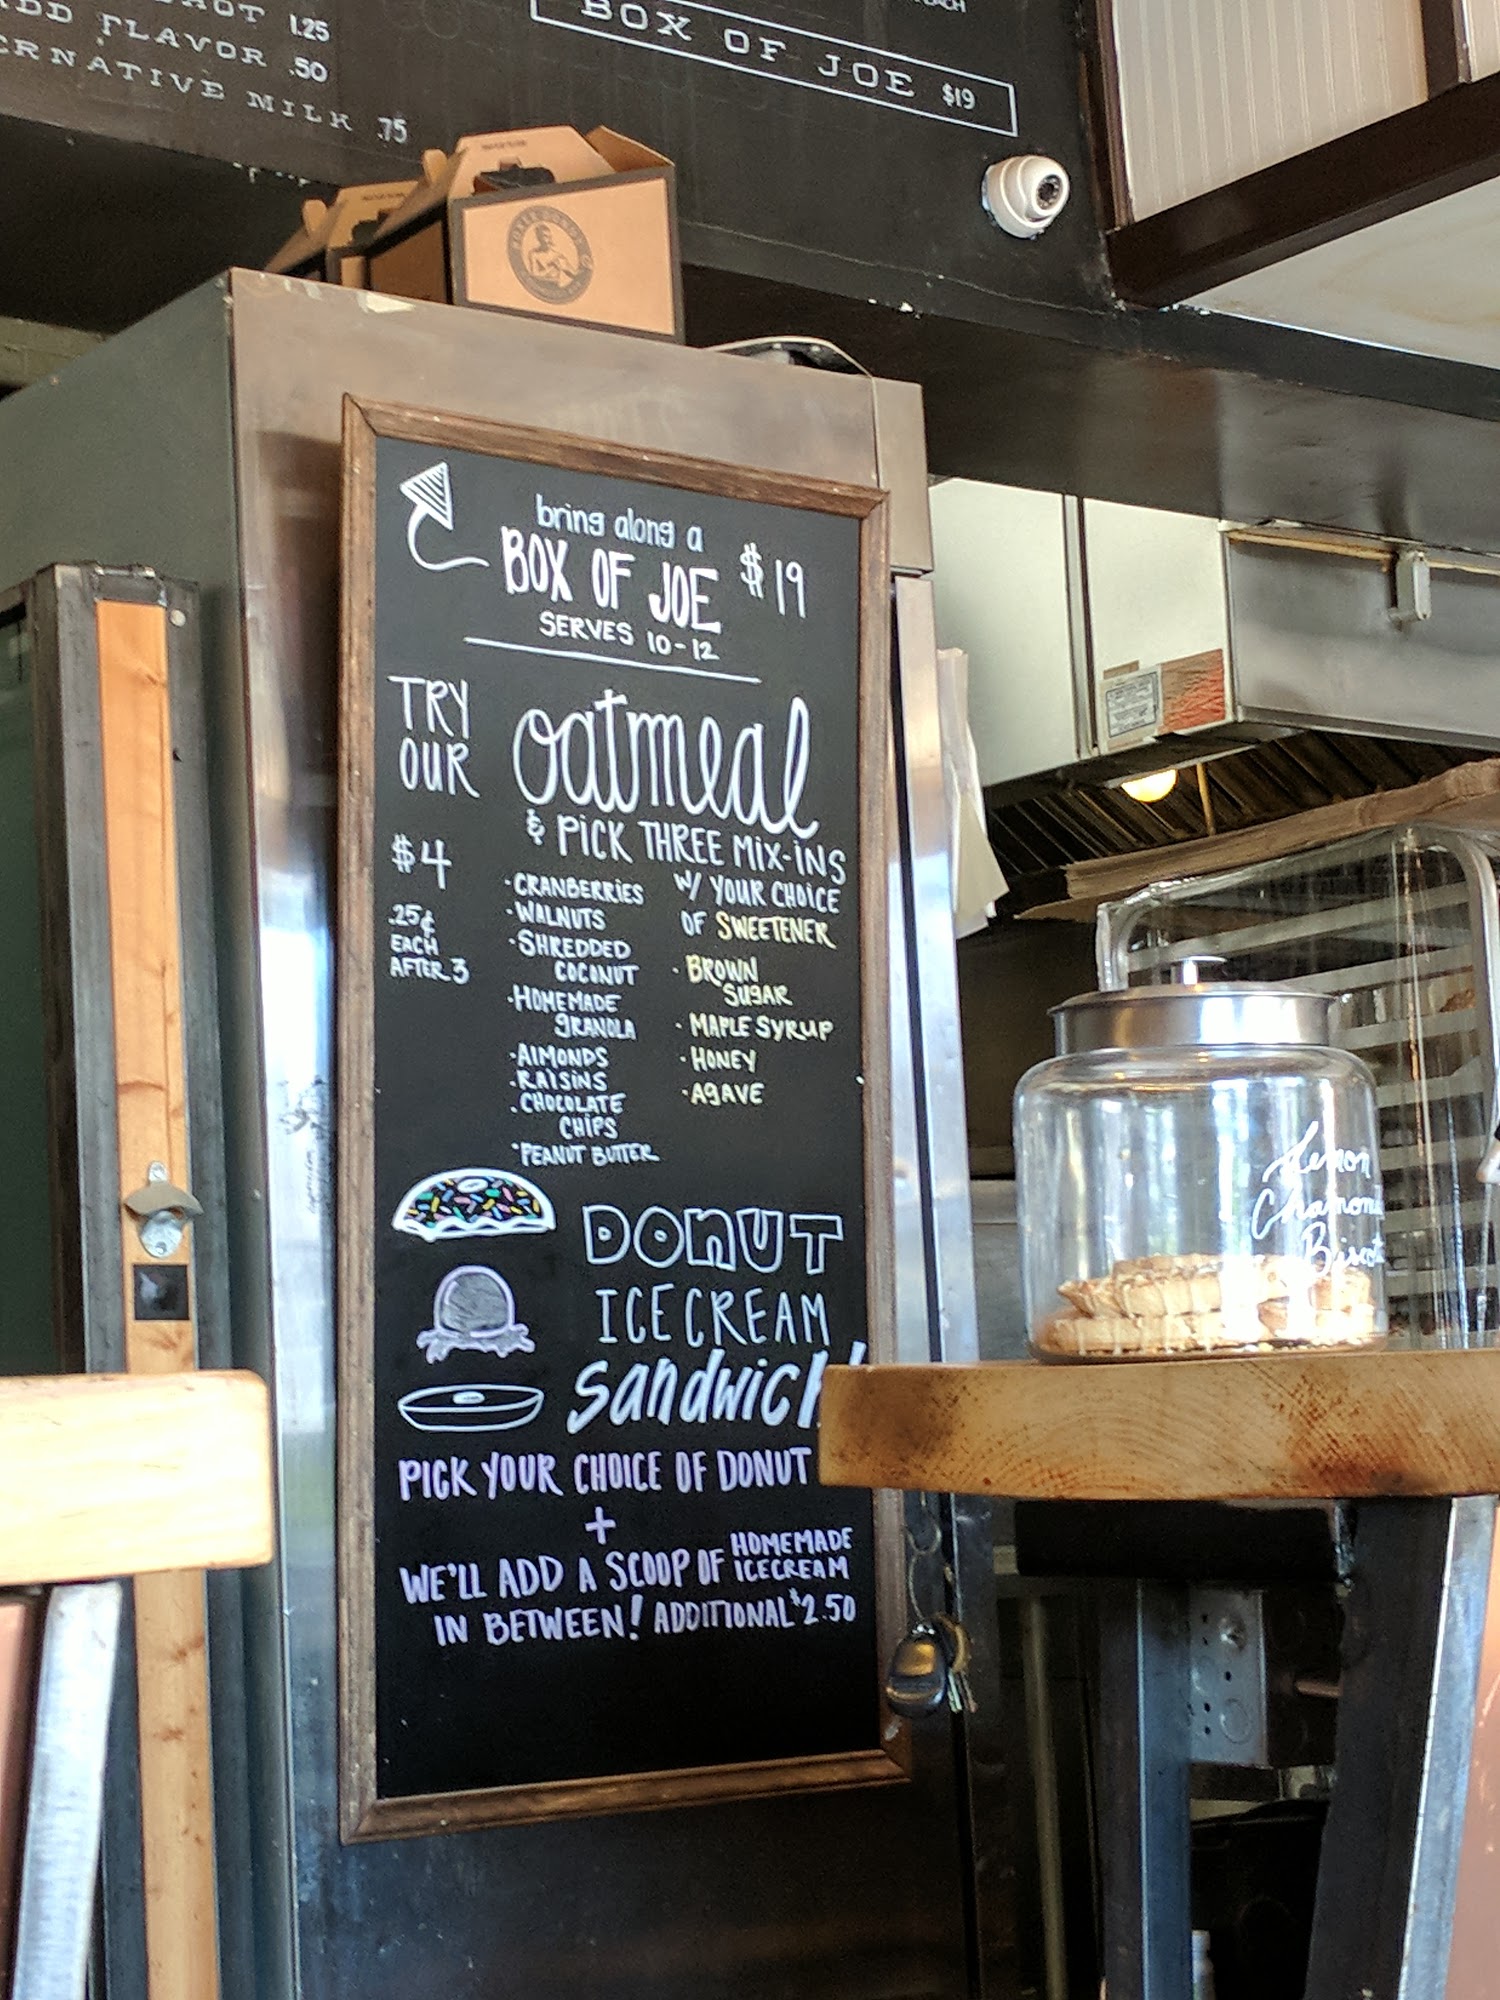 1.25
FLAVOR .50
MILK .75
BOX OF JOE $19
bring along a
BOX OF JOE $19
SERVES 10-12
TRY
OUR
oatmeal
& PICK THREE MIX-INS
$4
.25¢
EACH
AFTER 3
·CRANBERRIES
·WALNUTS
·SHREDDED
COCONUT
·HOMEMADE
GRANOLA
·AlMONDS
·RAISINS
·CHOCOLATE
CHIPS
·PEANUT BUTTER
W/ YOUR CHOICE
OF SWEETENER
·BROWN
SUGAR
·MAPLE SYRUP
·HONEY
·AGAVE
DONUT
ICE CREAM
SANDWICH!
PICK YOUR CHOICE OF DONUT
+
WE'LL ADD A SCOOP OF HOMEMADE
ICECREAM
IN BETWEEN! ADDITIONAL $2.50
Lemon